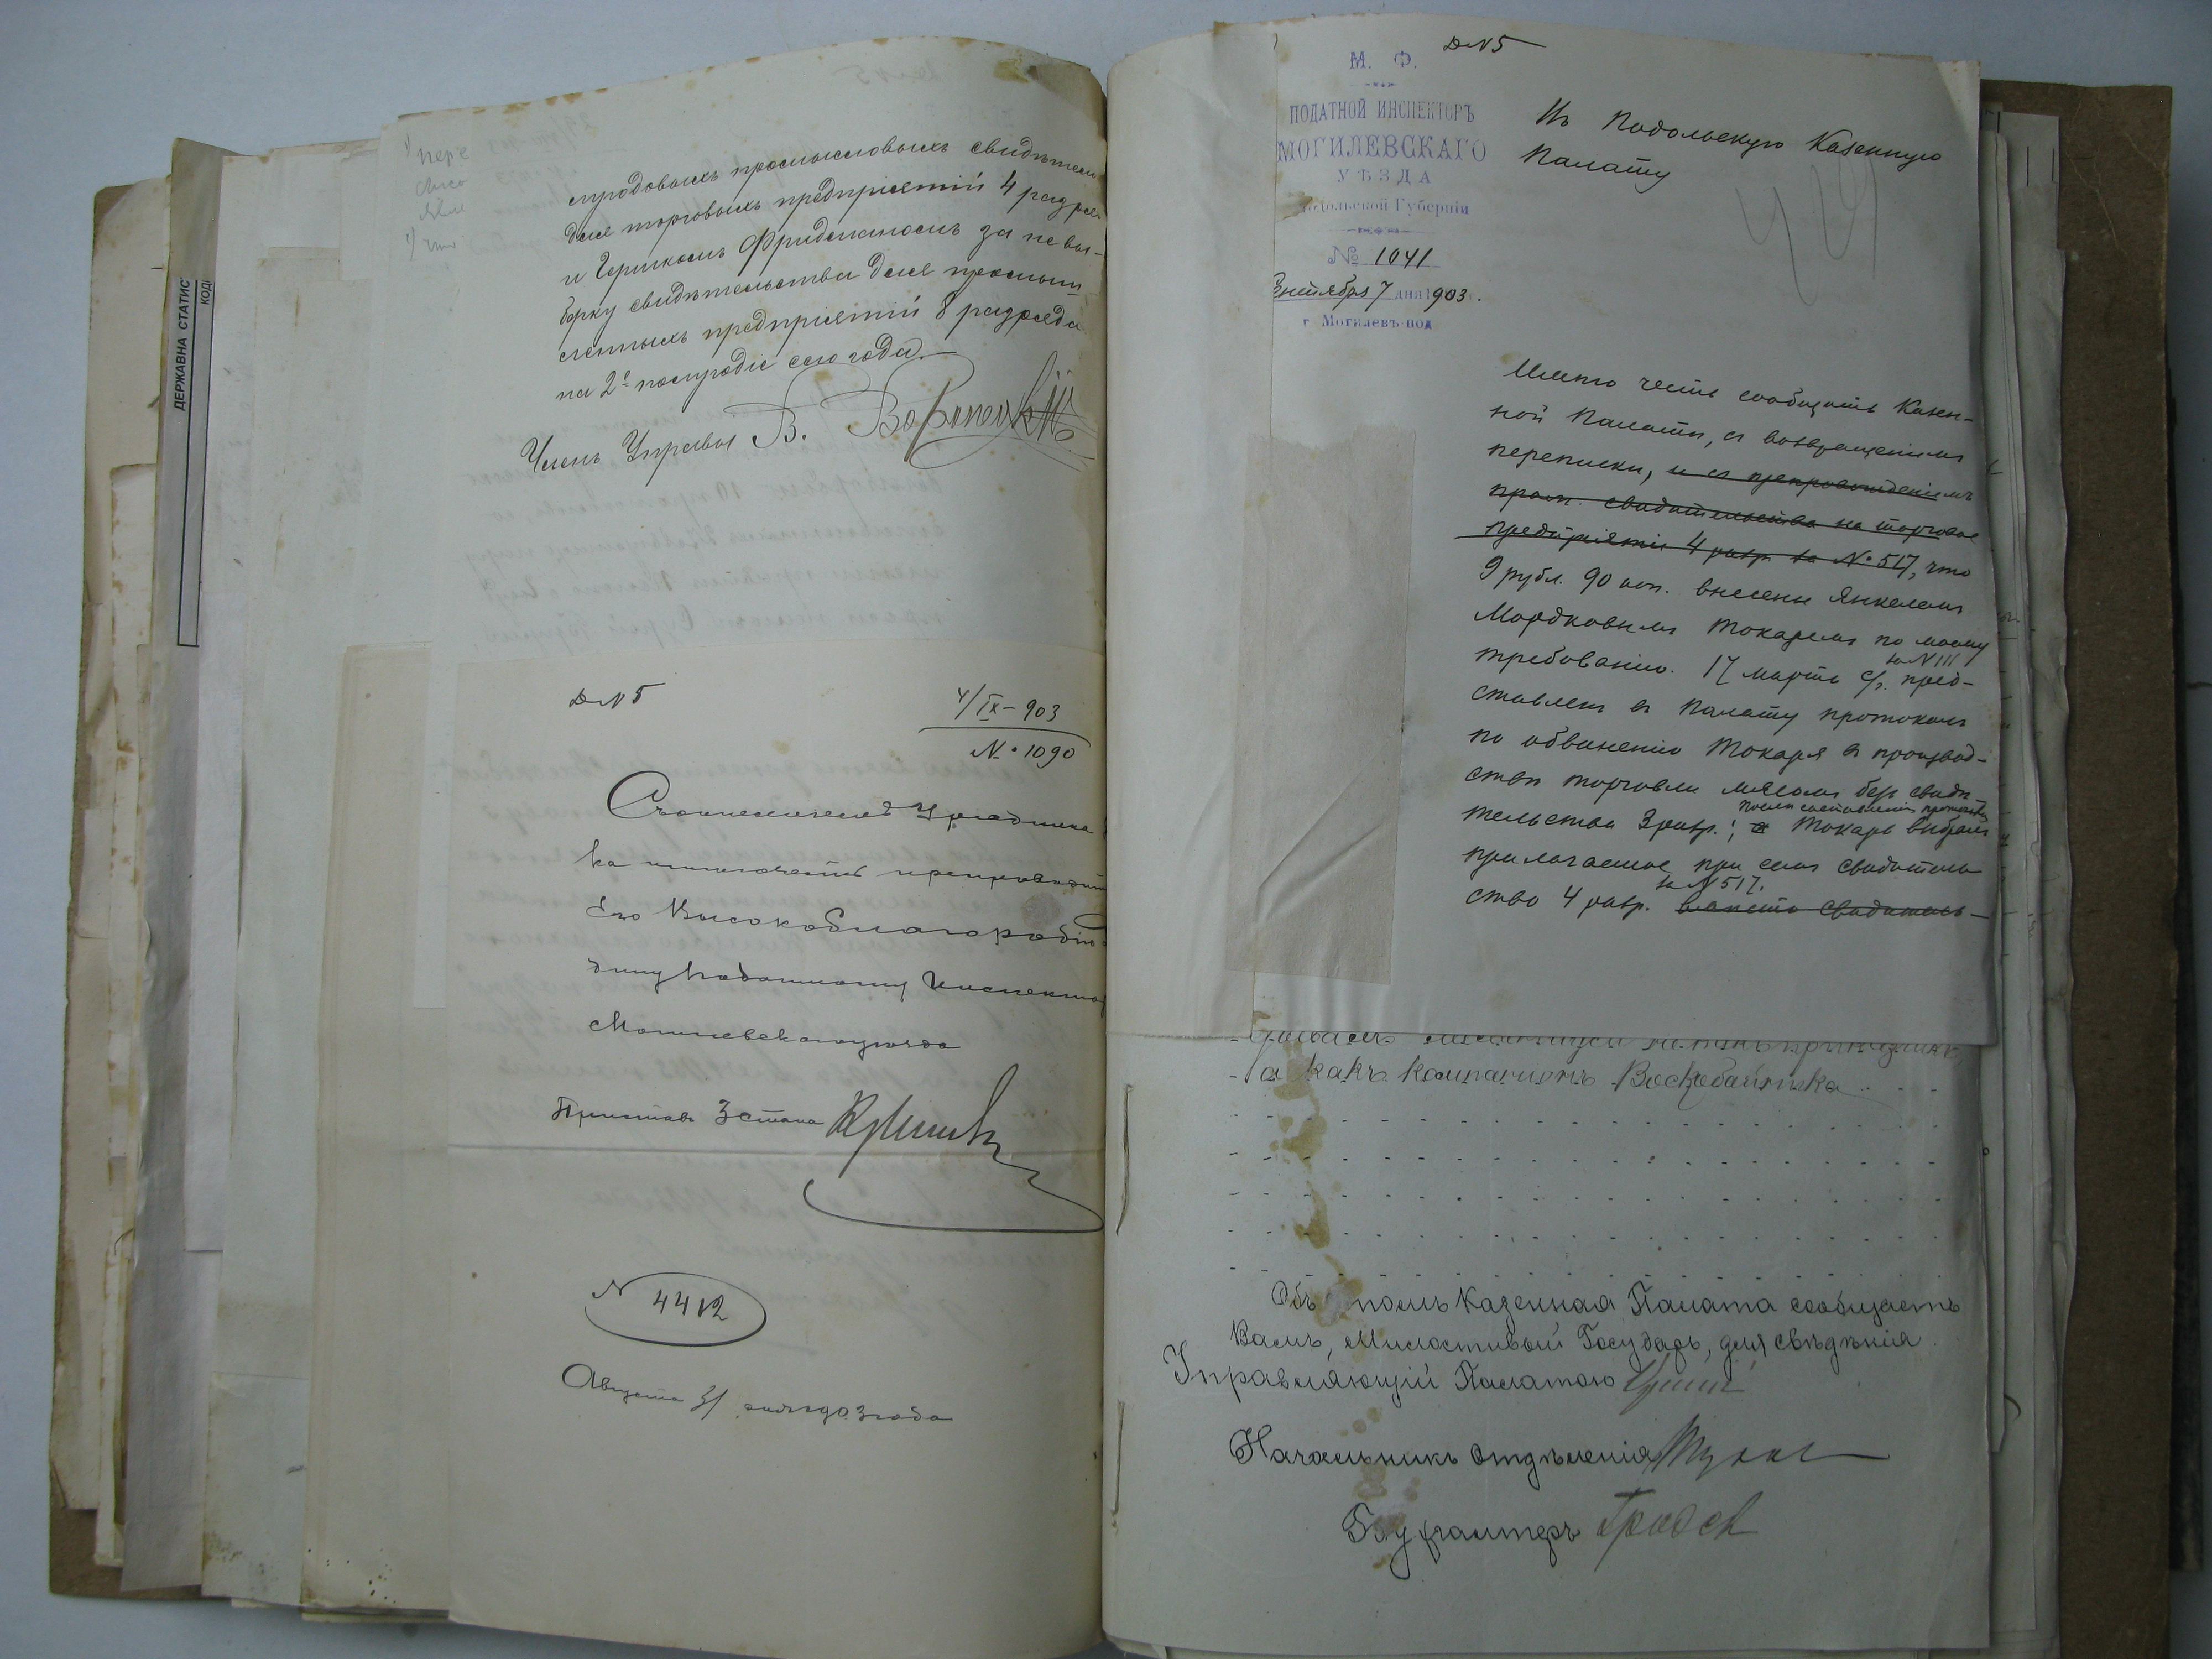 ДЕРЖАВНА СТАТИС
КОД
пере
что
лугодовыхъ промысловыхъ свидѣтель
для торговыхъ предпріятій 4 разря
и Гершкомъ Фридманомъ за невы-
борку свидѣтельства для промыш-
ленныхъ предпріятій 8 разряда
на 2е полугодіе сего года.-
Членъ Управы В.
Д N 5
4/IX-903
№ 1090
Его Высокоблагородію
дину Податному Инспектор
Могилевского уѣзда
Приставъ 3 стана
N 4412
Августа 31 дня 1903 года
Д N 5
М. Ф.
ПОДАТНОЙ ИНСПЕКТОРЪ
МОГИЛЕВСКАГО
УѢЗДА
Подольской Губерніи
№ 1041
Сентября 7 дня 1903.
г. Могилевъ-под
Въ Подольскую Казенную
Палату
Имѣю честь сообщить Казен-
ной Палатѣ, съ возвращеніемъ
переписки, и съ препровожденіемъ
пром. свидѣтельства на торговое
предпріятіе 4 разр. за № 517, что
9 рубл. 90 коп. внесены Янкелемъ
Мордковымъ Токаремъ по моему
требованію. 17 марта с/г. за N 111 пред-
ставленъ въ Палату протоколъ
по обвиненію Токаря въ производ-
ствѣ торговли мясомъ безъ свидѣ-
тельства 3 разр.; послѣ составленія протокола Токарь выбралъ
прилагаемое при семъ свидѣтель
ство 4 разр. за N 517. вмѣсто свидѣтель-
а какъ компаніонъ Воскобайника
Объ этомъ Казенная Палата сообщаетъ
Вамъ, Милостивый Государь, для свѣдѣнія.
Управляющій Палатою
Начальникъ Отдѣленія
Бухгалтеръ